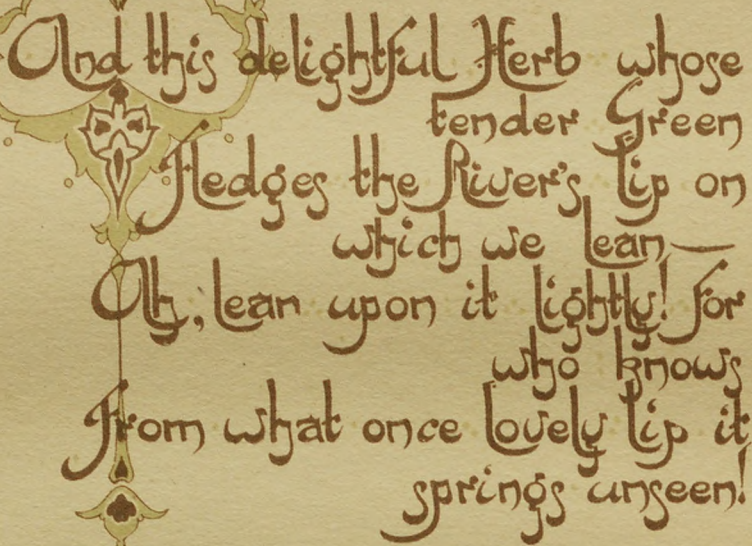 And this delightful Herb whose
tender Green
Fledges the River's Lip on
which we lean—
Ah, lean upon it lightly! For
who knows
From what once lovely Lip it
springs unseen!